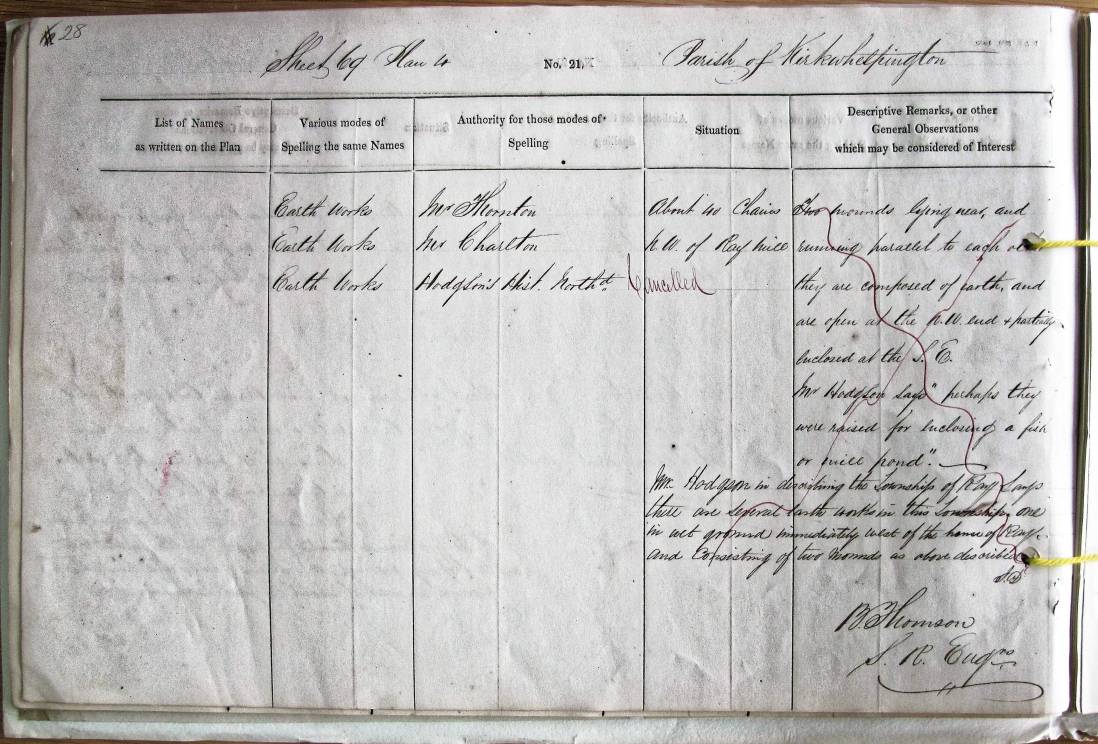 28
Sheet 69 Plan 4 No. 21, Parish of Kirkwhelpington
List of Names
as written on the Plan
Various modes of
Spelling the same Names
Authority for those modes of
Spelling
Situation
Descriptive Remarks, or other
General Observations
which may be considered of Interest
Earth Works Mr Thornton About 40 Chains Two mounds lying near, and
Earth Works Mr Charlton N.W. of Ray Mill running parallel to each other
Earth Works Hodgson's Hist. Northd. Cancelled they are composed of earth, and
are open at the N.W. end & partially
enclosed at the S. E.
Mr Hodgson says "perhaps they
were raised for enclosing a fish
or mill pond".
Mr. Hodgson in describing the Township of Ray Says
there are several Earth works in this township, one
in wet ground immediately west of the home of Ray.
and Consisting of two Mounds as above described
B. Thomson
S. R. Engrs